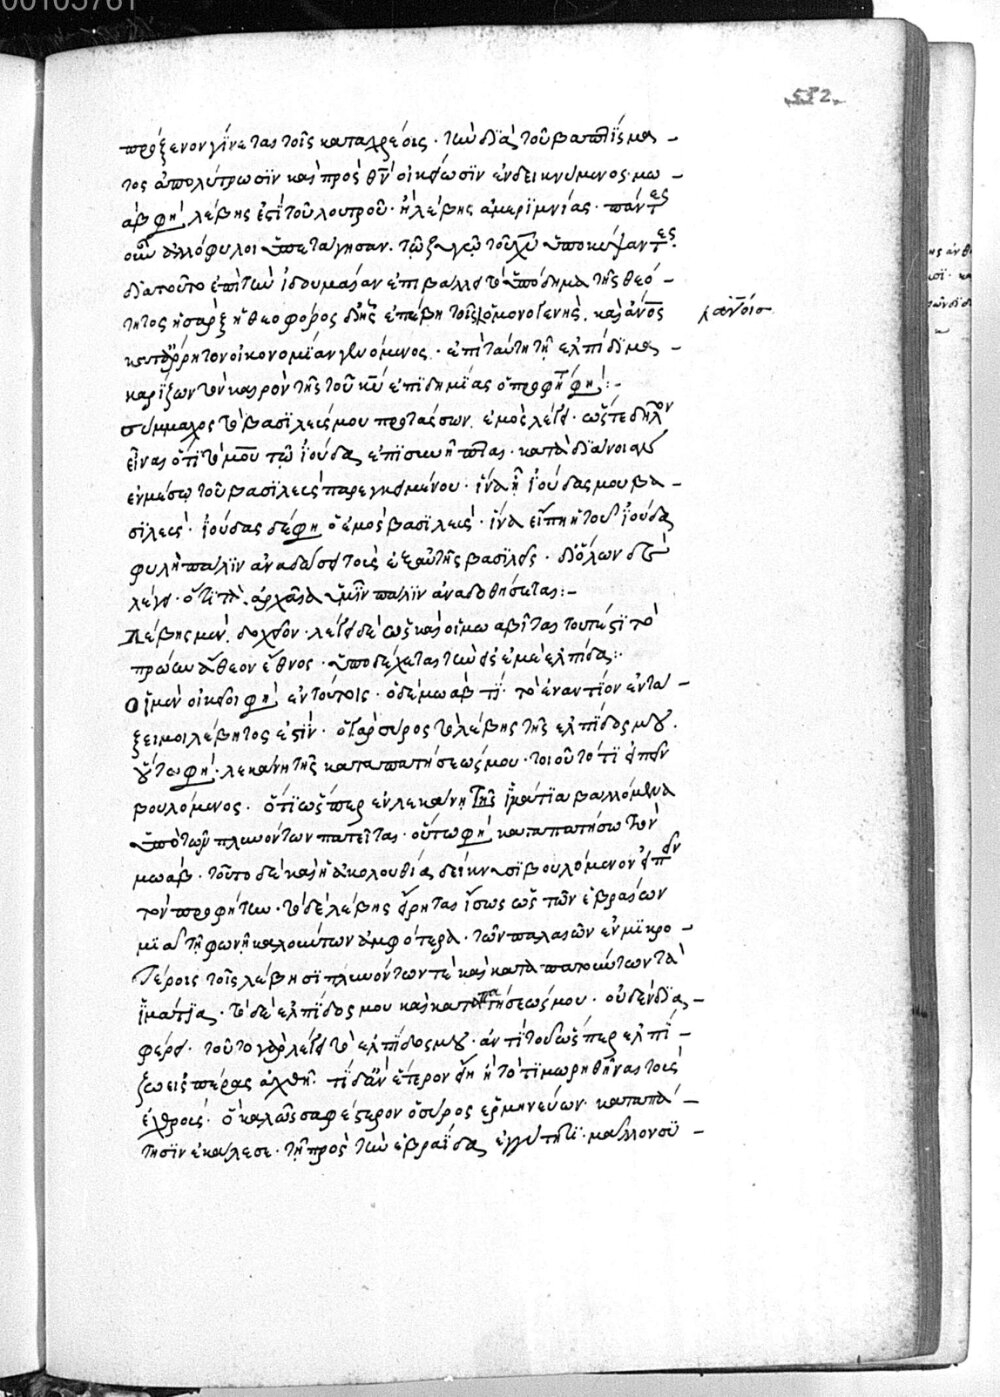 00105761
532
πρόξενον γίνεται τοῖς καταλρέοις· τὴν διὰ τοῦ βαπτίσμα-
τος ἀπολύτρωσϊν καὶ πρὸς θν̅ οἰκείωσϊν ἐνδεικνύμενος· μω-
ὰβ φη λέβης ἐστὶ τοῦ λουτροῦ· ἢ λέβης ἀμεριμνίας· πάντες
οὖν ἀλλόφυλοι ὑπετάγησαν· τῷ ζυγῷ τοῦ χυ̅ ὑποκύψαντες·
διατοῦτο ἐπὶ τὴν ἰδουμαίαν ἐπιβαλεῖ τὸ ὑπόδημα τῆς θεό-
τητος ἡ σαρξ ἡ θεοφόρος δι' ἧς ἐπέβη τοῖς ὁ μονογενής, καὶ ἄνο̅ς
ἀνο̅ις
κατ' ἄρρητον οἰκονομίαν γενόμενος· ἐπὶ ταύτη τῆ ἐλπίδι μα-
καρίζων τὸν καιρὸν τῆς τοῦ κυ̅ ἐπιδημίας ὁ προφήτης φη:-
σύμμαχος τὸ βασϊλεύς μου προτάσσων, ἐμὸς λέγει· ὥστε δῆλον
εἶναι ὅτι τὸ μοῦ τῷ ἰούδα ἐπισυνῆπται· κατὰ διάνοιαν
ἐν μέσῳ τοῦ βασιλεὺς παρεγκειμένου· ἵνα ἦ ἰούδας μου βα-
σϊλεύς· ἰούδας δέ φη ὁ ἐμὸς βασϊλεύς· ἵνα εἴπη ἡ τοῦ ἰούδα
φυλὴ πάλϊν ἀναδώσει τοὺς ἐξ αὐτῆς βασϊλεῖς· δι' ὅλων δὲ
λέγει· ὅτϊ τὰ ἀρχαῖα ὑμῖν πάλϊν ἀναδοθήσεται:-
Λέβης μὲν, δοχεῖον· λέγει δὲ ὡς καὶ οἱ μωαβῖται τουτέστϊ τὸ
πρώην ἄθεον ἔθνος· ὑποδέχεται τὴν εἰς ἐμὲ ἐλπίδα:·
Οἱ μὲν οἰκεῖοι φη, ἐν τούτοις· ὁ δὲ μωὰβ τί· τὸ ἐναντίον ἐντά-
ξει μοι λέβητος ἐστϊν· ὁ γὰρ σύρος τὸ λέβης τῆς ἐλπίδος μου·
οὕτω φη· λεκάνη τῆς καταπατήσεώς μου· τοιοῦτό τϊ εἰπεῖν
βουλόμενος· ὅτϊ ὥσπερ ἐν λεκάνη τῆς ἱμάτϊα βαλλόμενα
ὑπὸ τῶν πλυνόντων πατεῖται· οὕτω φη, καταπατήσω τὸν
μωάβ· τοῦτο δὲ καὶ ἡ ἀκολουθία δείκνυσϊ βουλόμενον εἰπεῖν
τὸν προφήτην· τὸ δὲ λέβης εἴρηται ἴσως ὡς τῶν ἑβραίων
μϊᾶ τῆ φωνῆ καλούντων ἀμφότερα· τῶν παλαιῶν ἐν μϊκρο-
τέροις τοῖς λέβησϊ πλυνόντων τὲ καὶ καταπατούντων τὰ
ἱμάτϊα· τὸ δὲ ἐλπίδος μου καὶ καταπατήσεώς μου· οὐδὲν δϊα-
φέρει· τοῦτο γὰρ λέγει τὸ ἐλπίδος μου· ἀντὶ τοῦ ὥσπερ ἐλπί-
ζω εἰς πέρας ἀχθῆ· τί δ' ἂν ἕτερον εἴη ἢ τὸ τϊμωρηθῆναι τοὺς
ἐχθρούς· ὃ καλῶς σαφέστερον ὁ σύρος ἑρμηνεύων· καταπά-
τησϊν ἐκάλεσε· τῆ πρὸς τὴν ἑβραΐδα ἐγγύτητϊ· μᾶλλον σϋ-